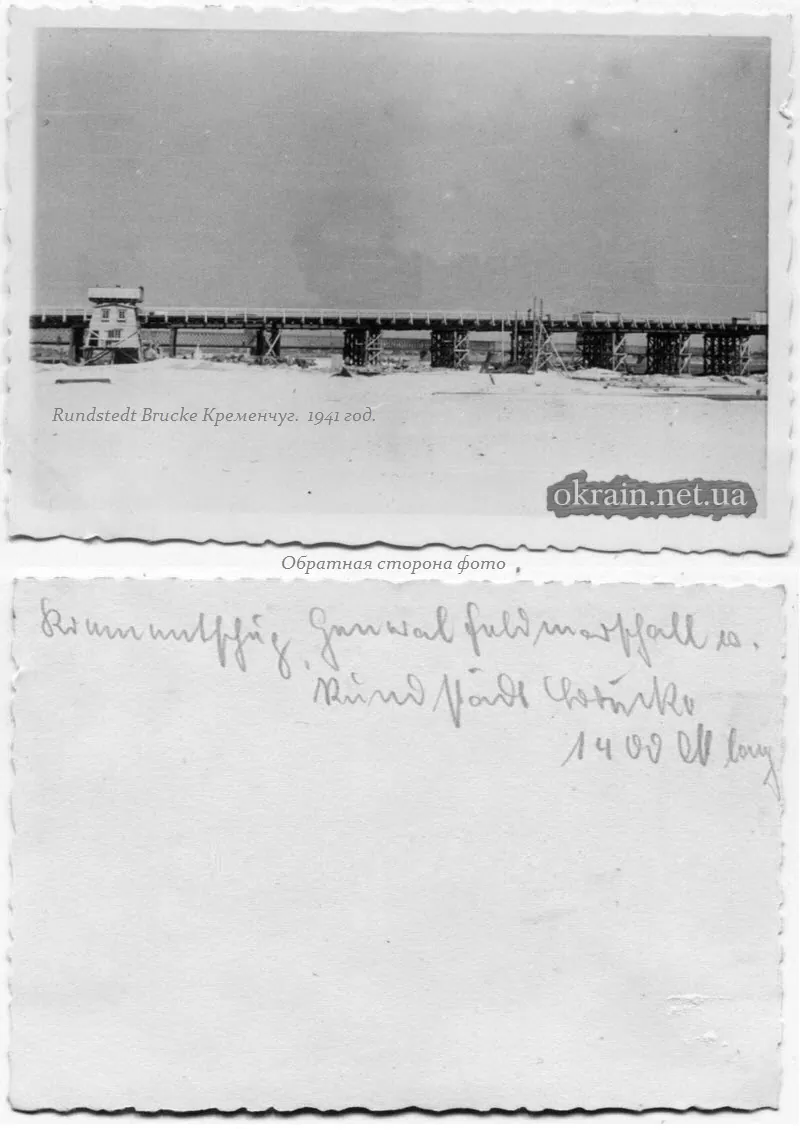 Rundstedt Brucke Кременчуг. 1941 год.
okrain.net.ua
Обратная сторона фото
Krementschug, Generalfeldmarschall v.
Rundstädt Brücke
1400 M lang